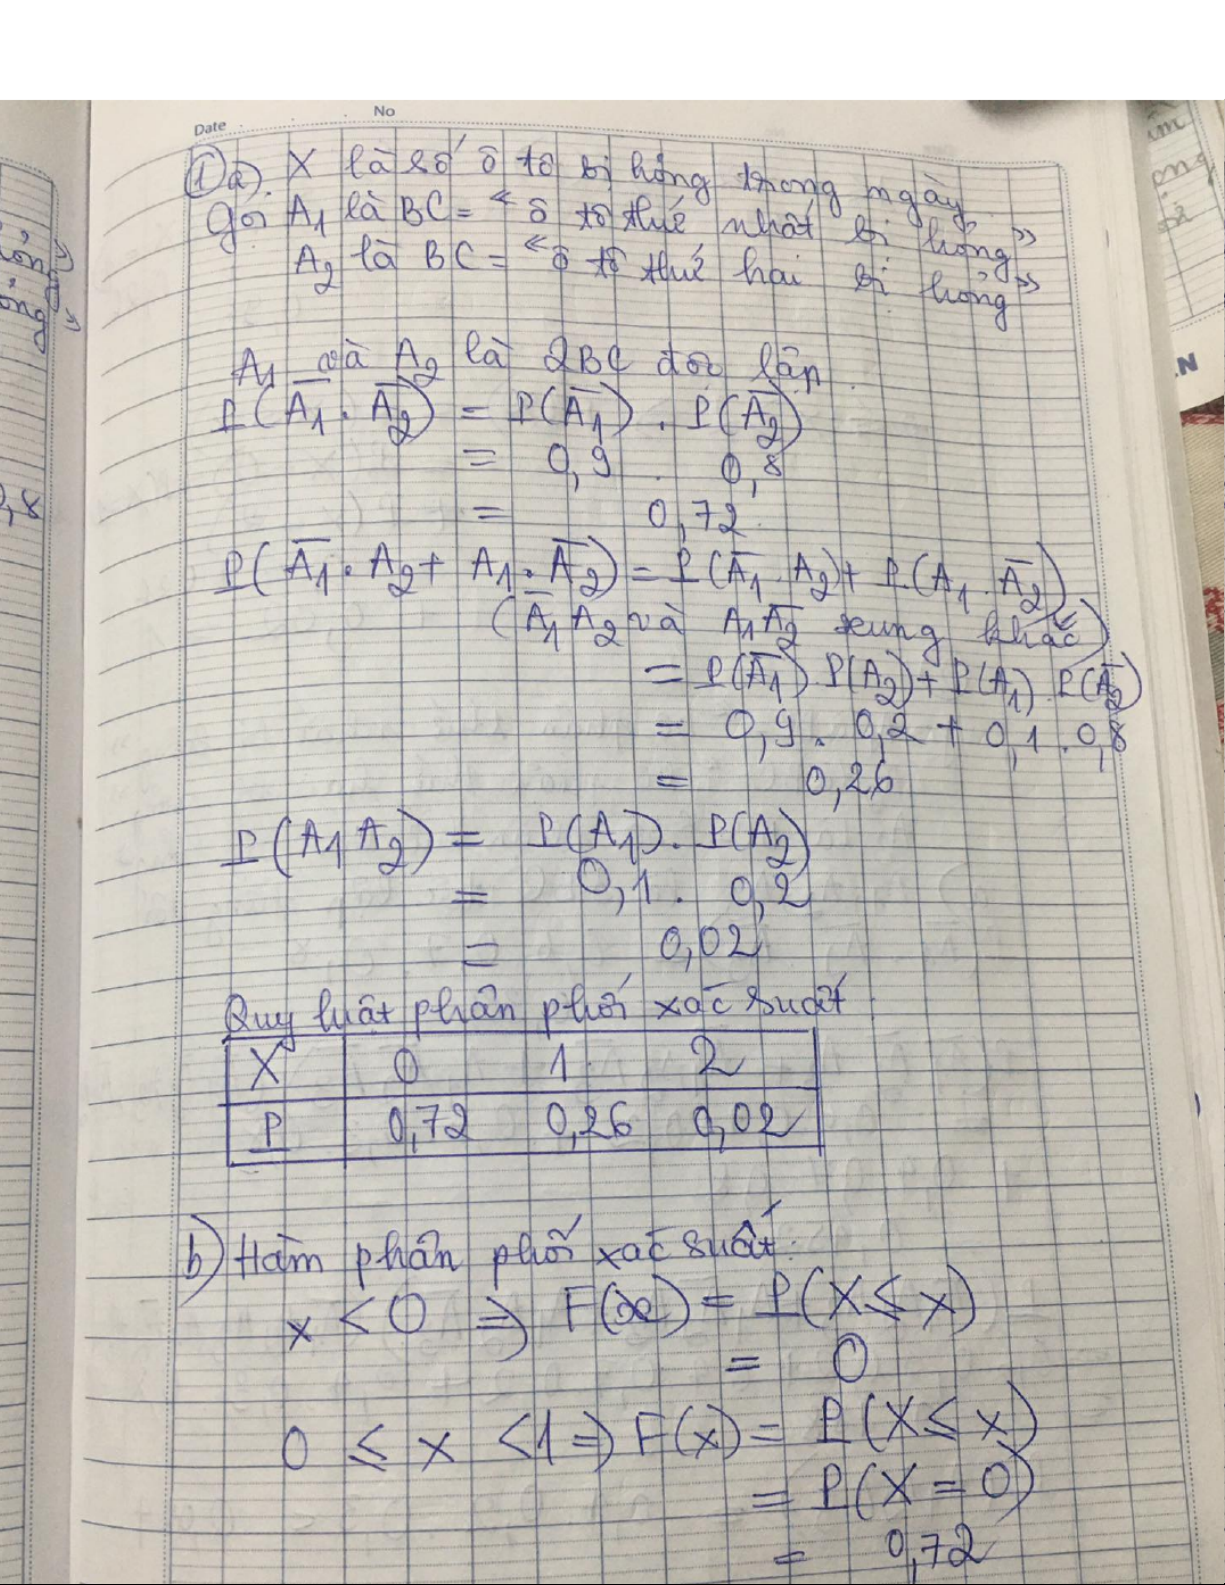 Date No
① a). X là số ô tô bị hỏng trong ngày.
Gọi A₁ là BC = "ô tô thứ nhất bị hỏng"
A₂ là BC = "ô tô thứ hai bị hỏng"
A₁ và A₂ là 2BC độc lập.
P(A̅₁ . A̅₂) = P(A̅₁) . P(A̅₂)
= 0,9 . 0,8
= 0,72.
P(A̅₁ . A₂ + A₁ . A̅₂) = P(A̅₁ . A₂) + P(A₁ . A̅₂)
(A̅₁A₂ và A₁A̅₂ xung khắc)
= P(A̅₁) P(A₂) + P(A₁) . P(A̅₂)
= 0,9 . 0,2 + 0,1 . 0,8
= 0,26
P(A₁A₂) = P(A₁) . P(A₂)
= 0,1 . 0,2
= 0,02
Quy luật phân phối xác suất
X 0 1 2
P 0,72 0,26 0,02
b) Hàm phân phối xác suất.
x < 0 ⇒ F(x) = P(X ≤ x)
= 0
0 ≤ x < 1 ⇒ F(x) = P(X ≤ x)
= P(X = 0)
= 0,72